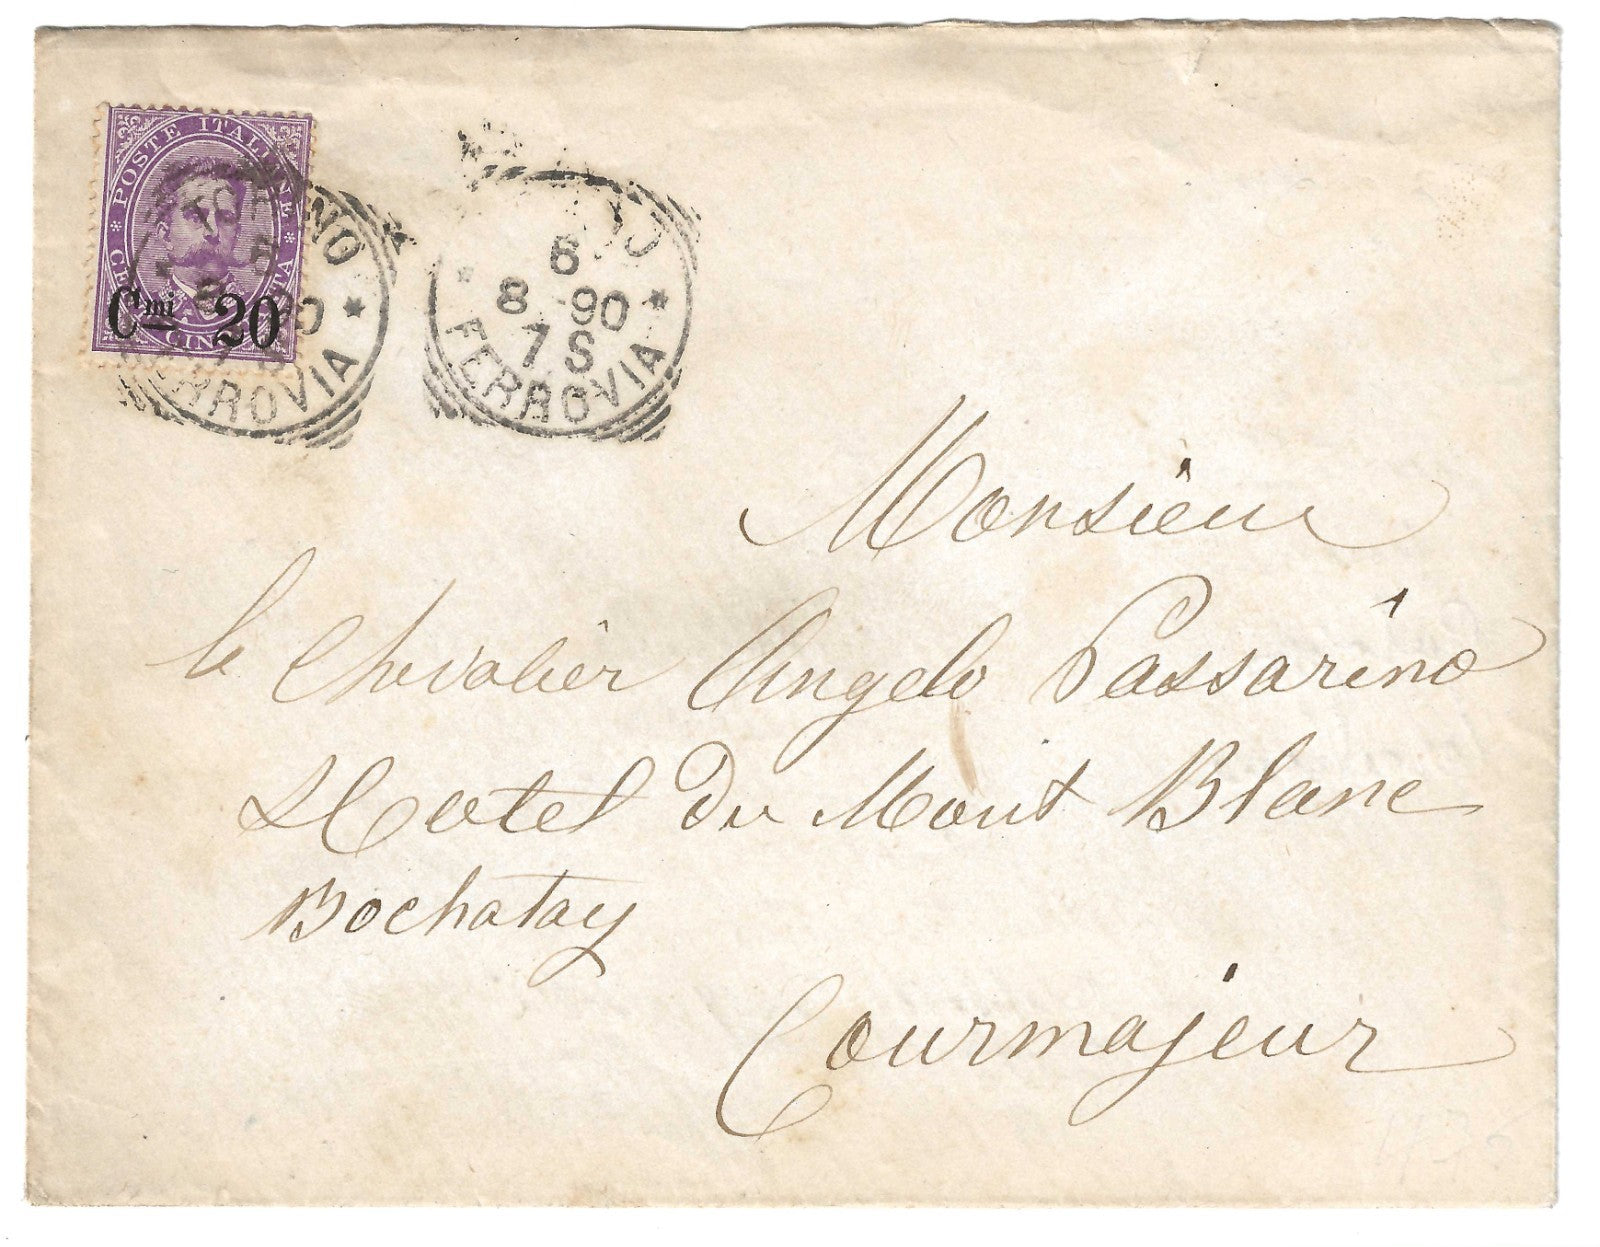 POSTE ITALIANE
Cmi 20
TORINO
FERROVIA
6
8 90
7 S
FERROVIA
Monsieur
le Chevalier Angelo Passarino
Hotel du Mont Blanc
Bochatay
Courmajeur